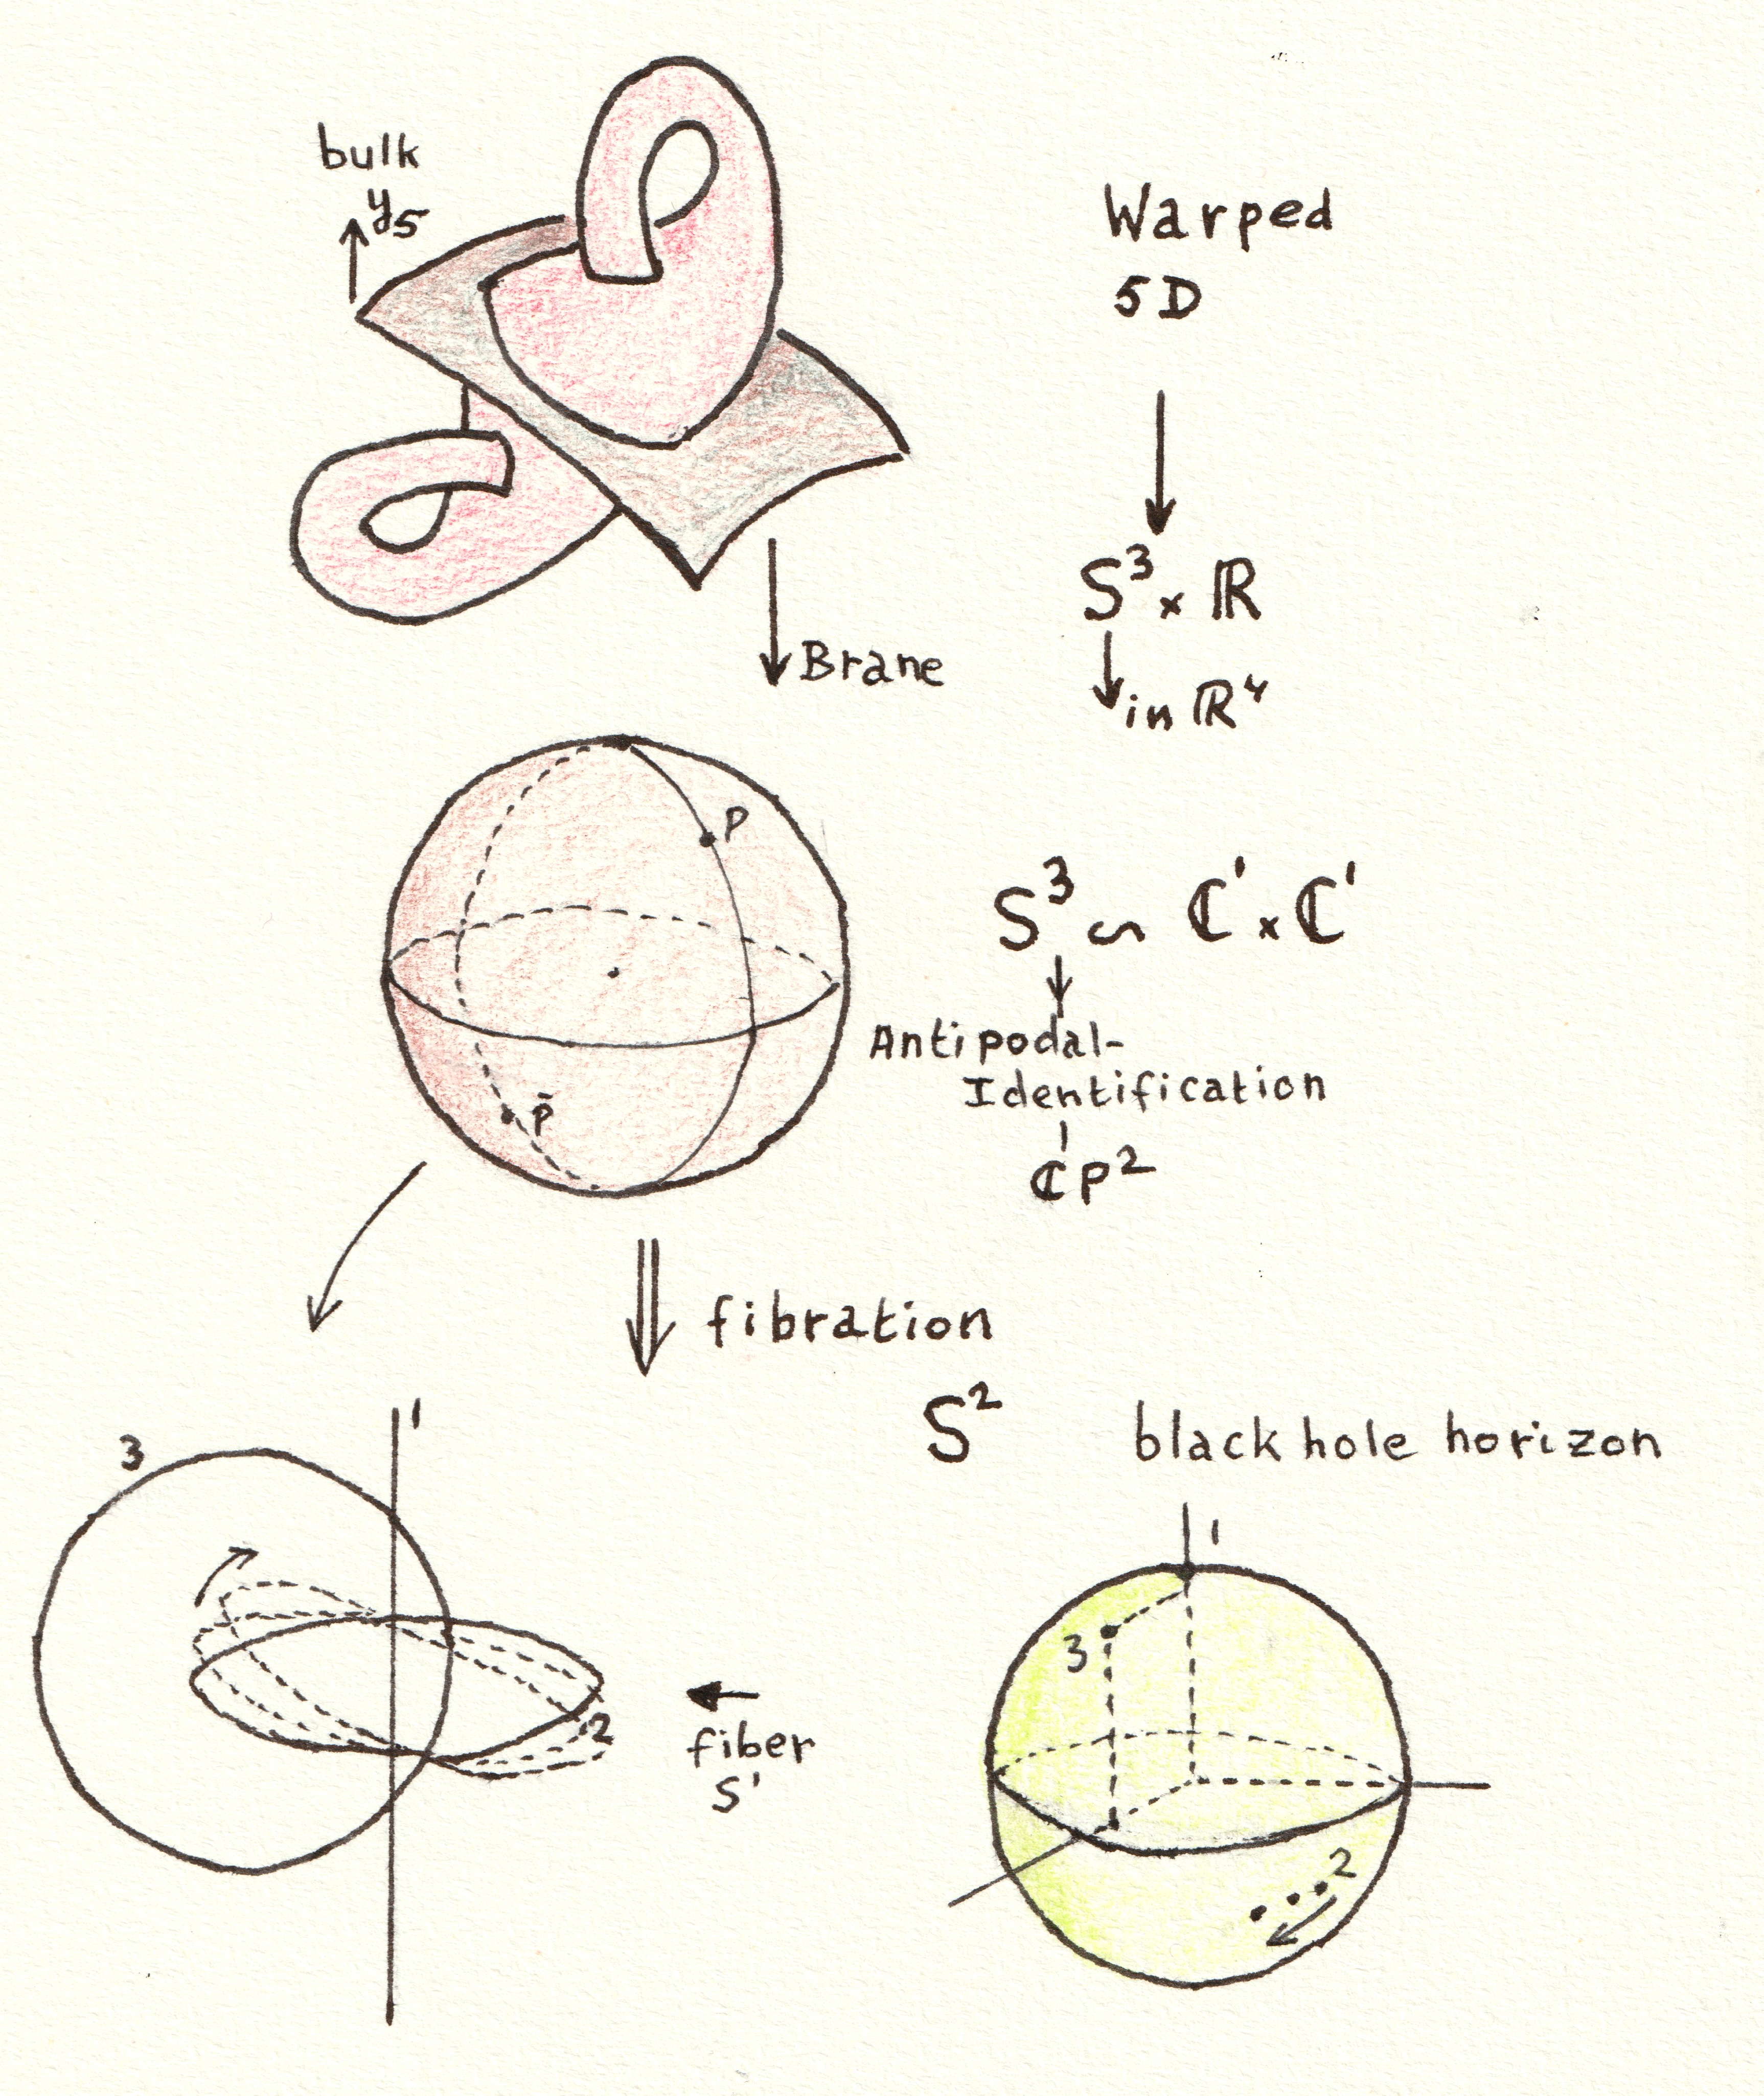 bulk
y₅
Warped
5D
S³ × ℝ
in ℝ⁴
Brane
P
S³ ∽ ℂ¹ × ℂ¹
Antipodal-
Identification
ℂP²
p̄
fibration
S²
black hole horizon
3
1
2
fiber
S¹
1
3
2